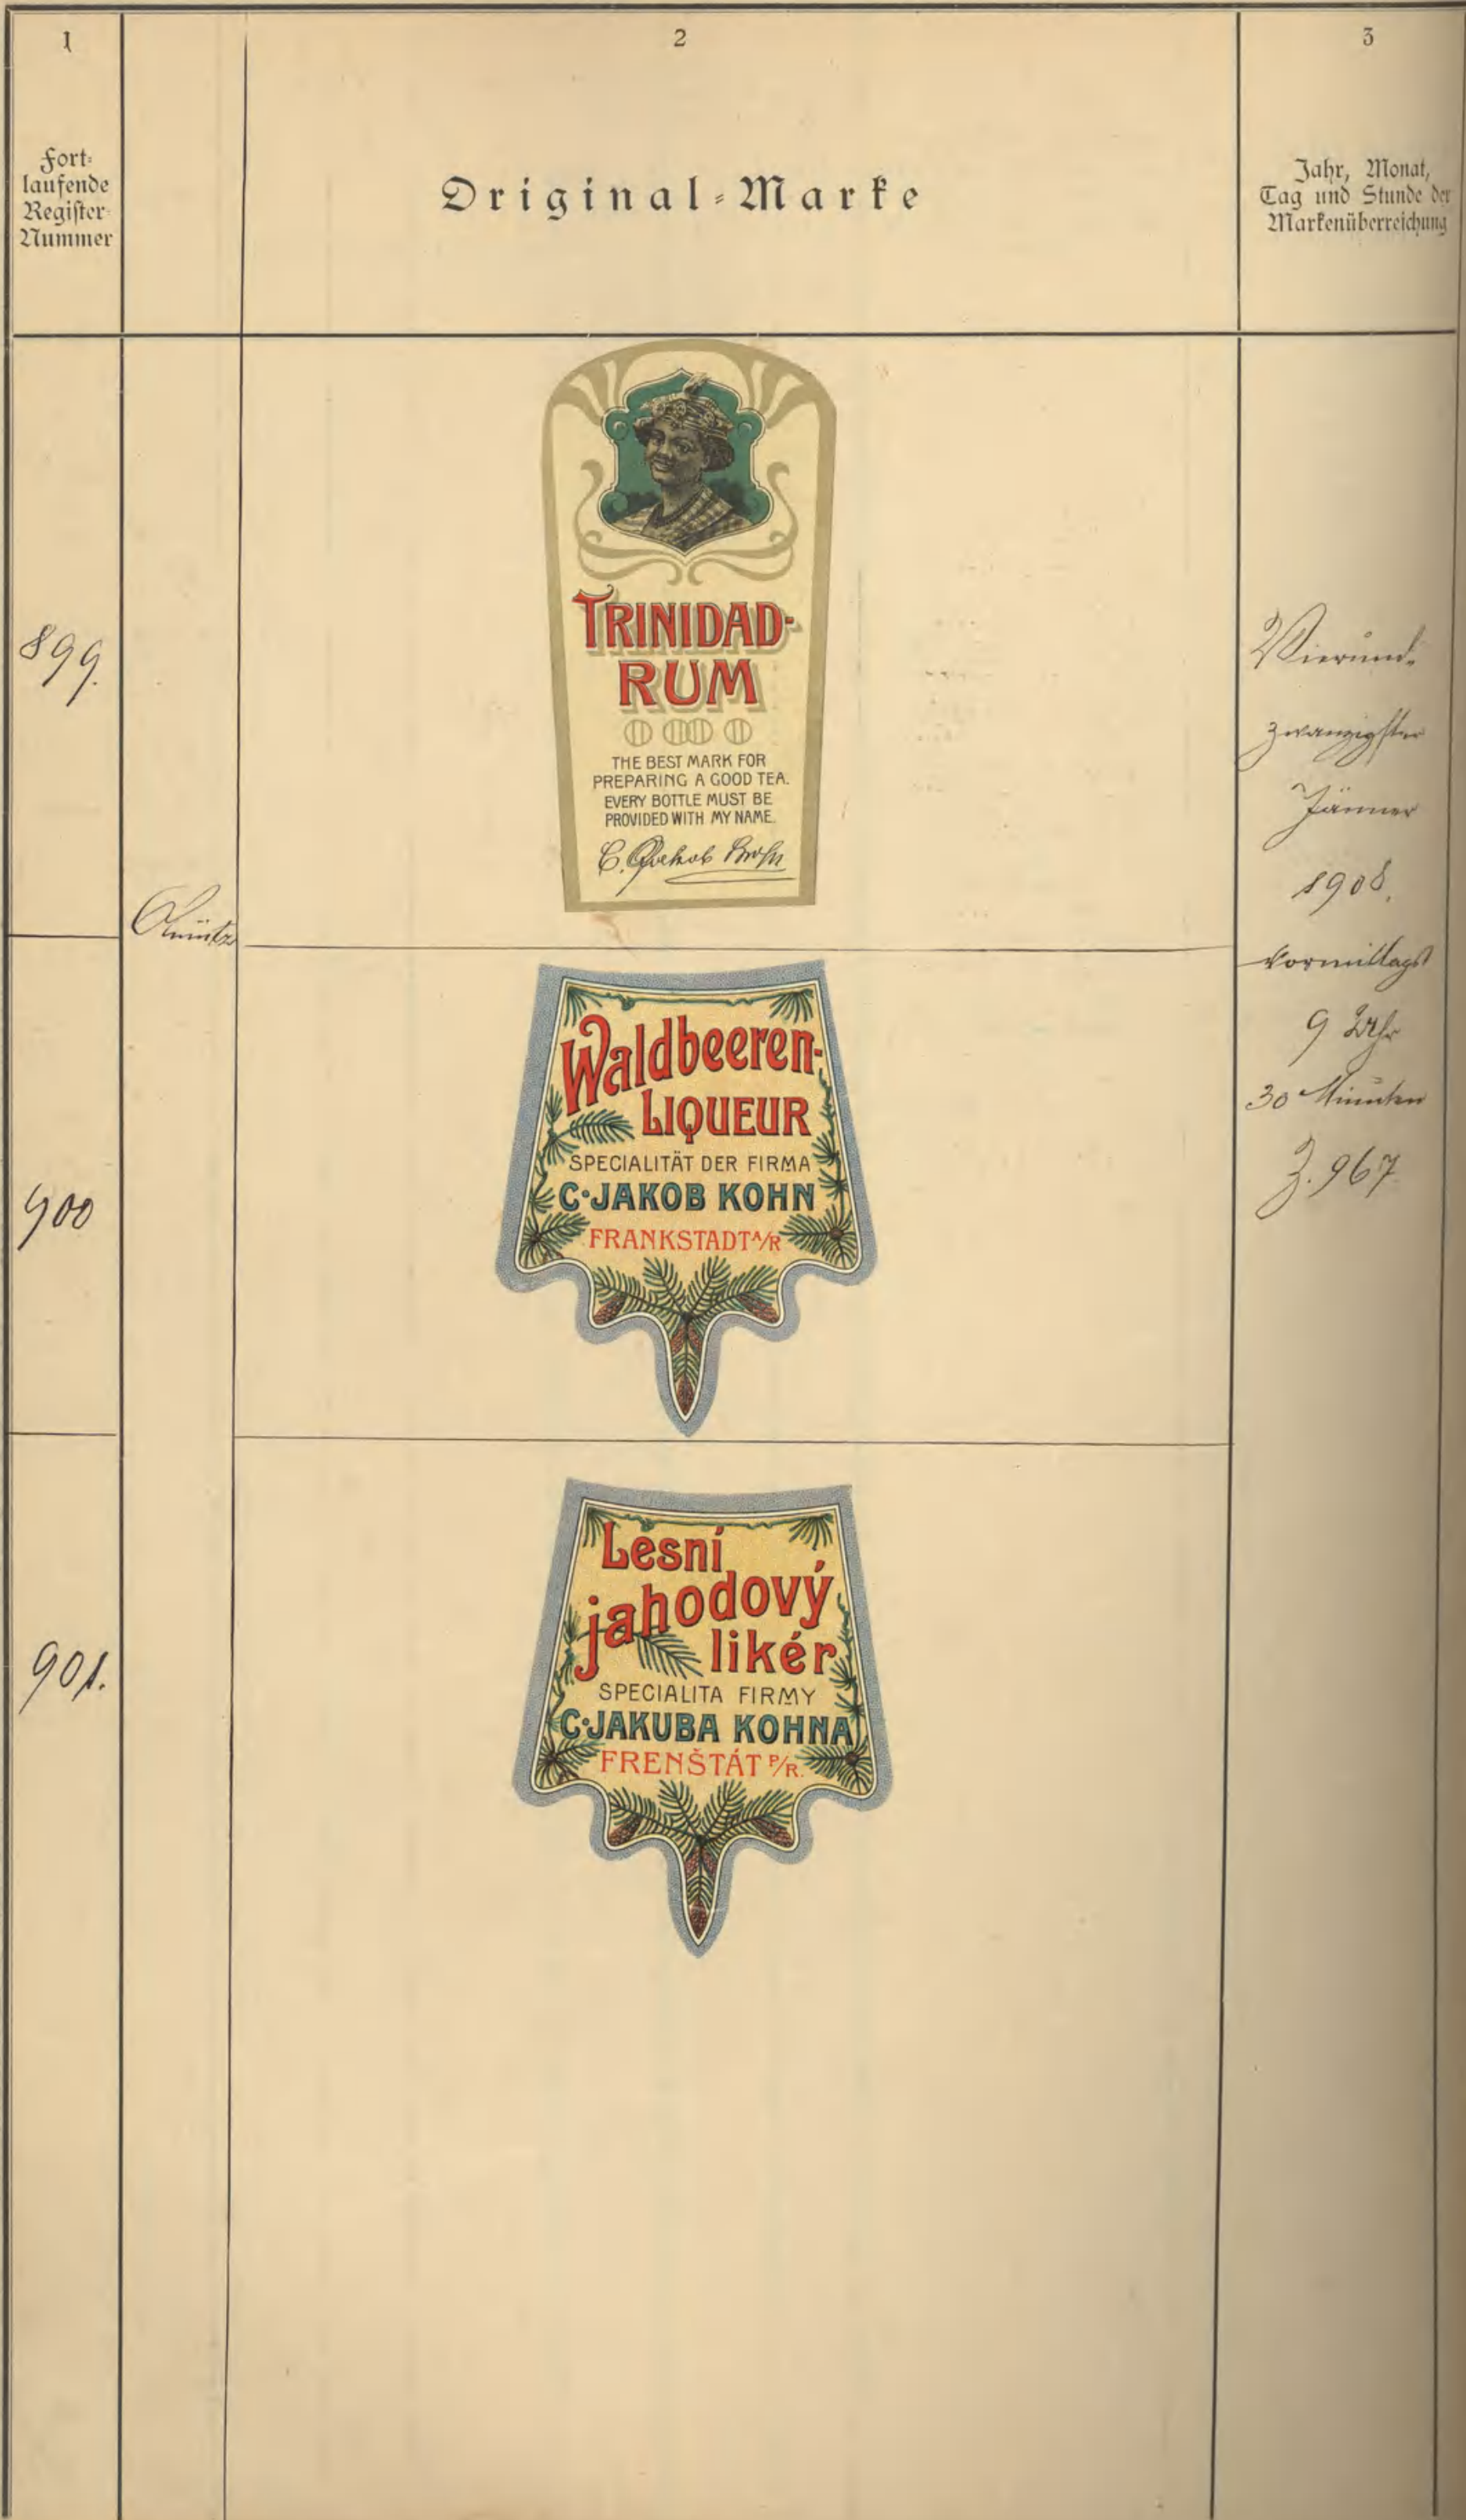 1
2
3
Fort-
laufende
Register-
Nummer
Original-Marke
Jahr, Monat,
Tag und Stunde der
Markenüberreichung
899.
TRINIDAD-
RUM
THE BEST MARK FOR
PREPARING A GOOD TEA.
EVERY BOTTLE MUST BE
PROVIDED WITH MY NAME.
C. Jakob Kohn
Vierund-
zwanzigster
Jänner
1908.
vormittags
9 Uhr
30 Minuten
Z. 967
Olmütz
900
Waldbeeren-
LIQUEUR
SPECIALITÄT DER FIRMA
C. JAKOB KOHN
FRANKSTADT A/R
901.
Lesní
jahodový
likér
SPECIALITA FIRMY
C. JAKUBA KOHNA
FRENŠTÁT P/R.